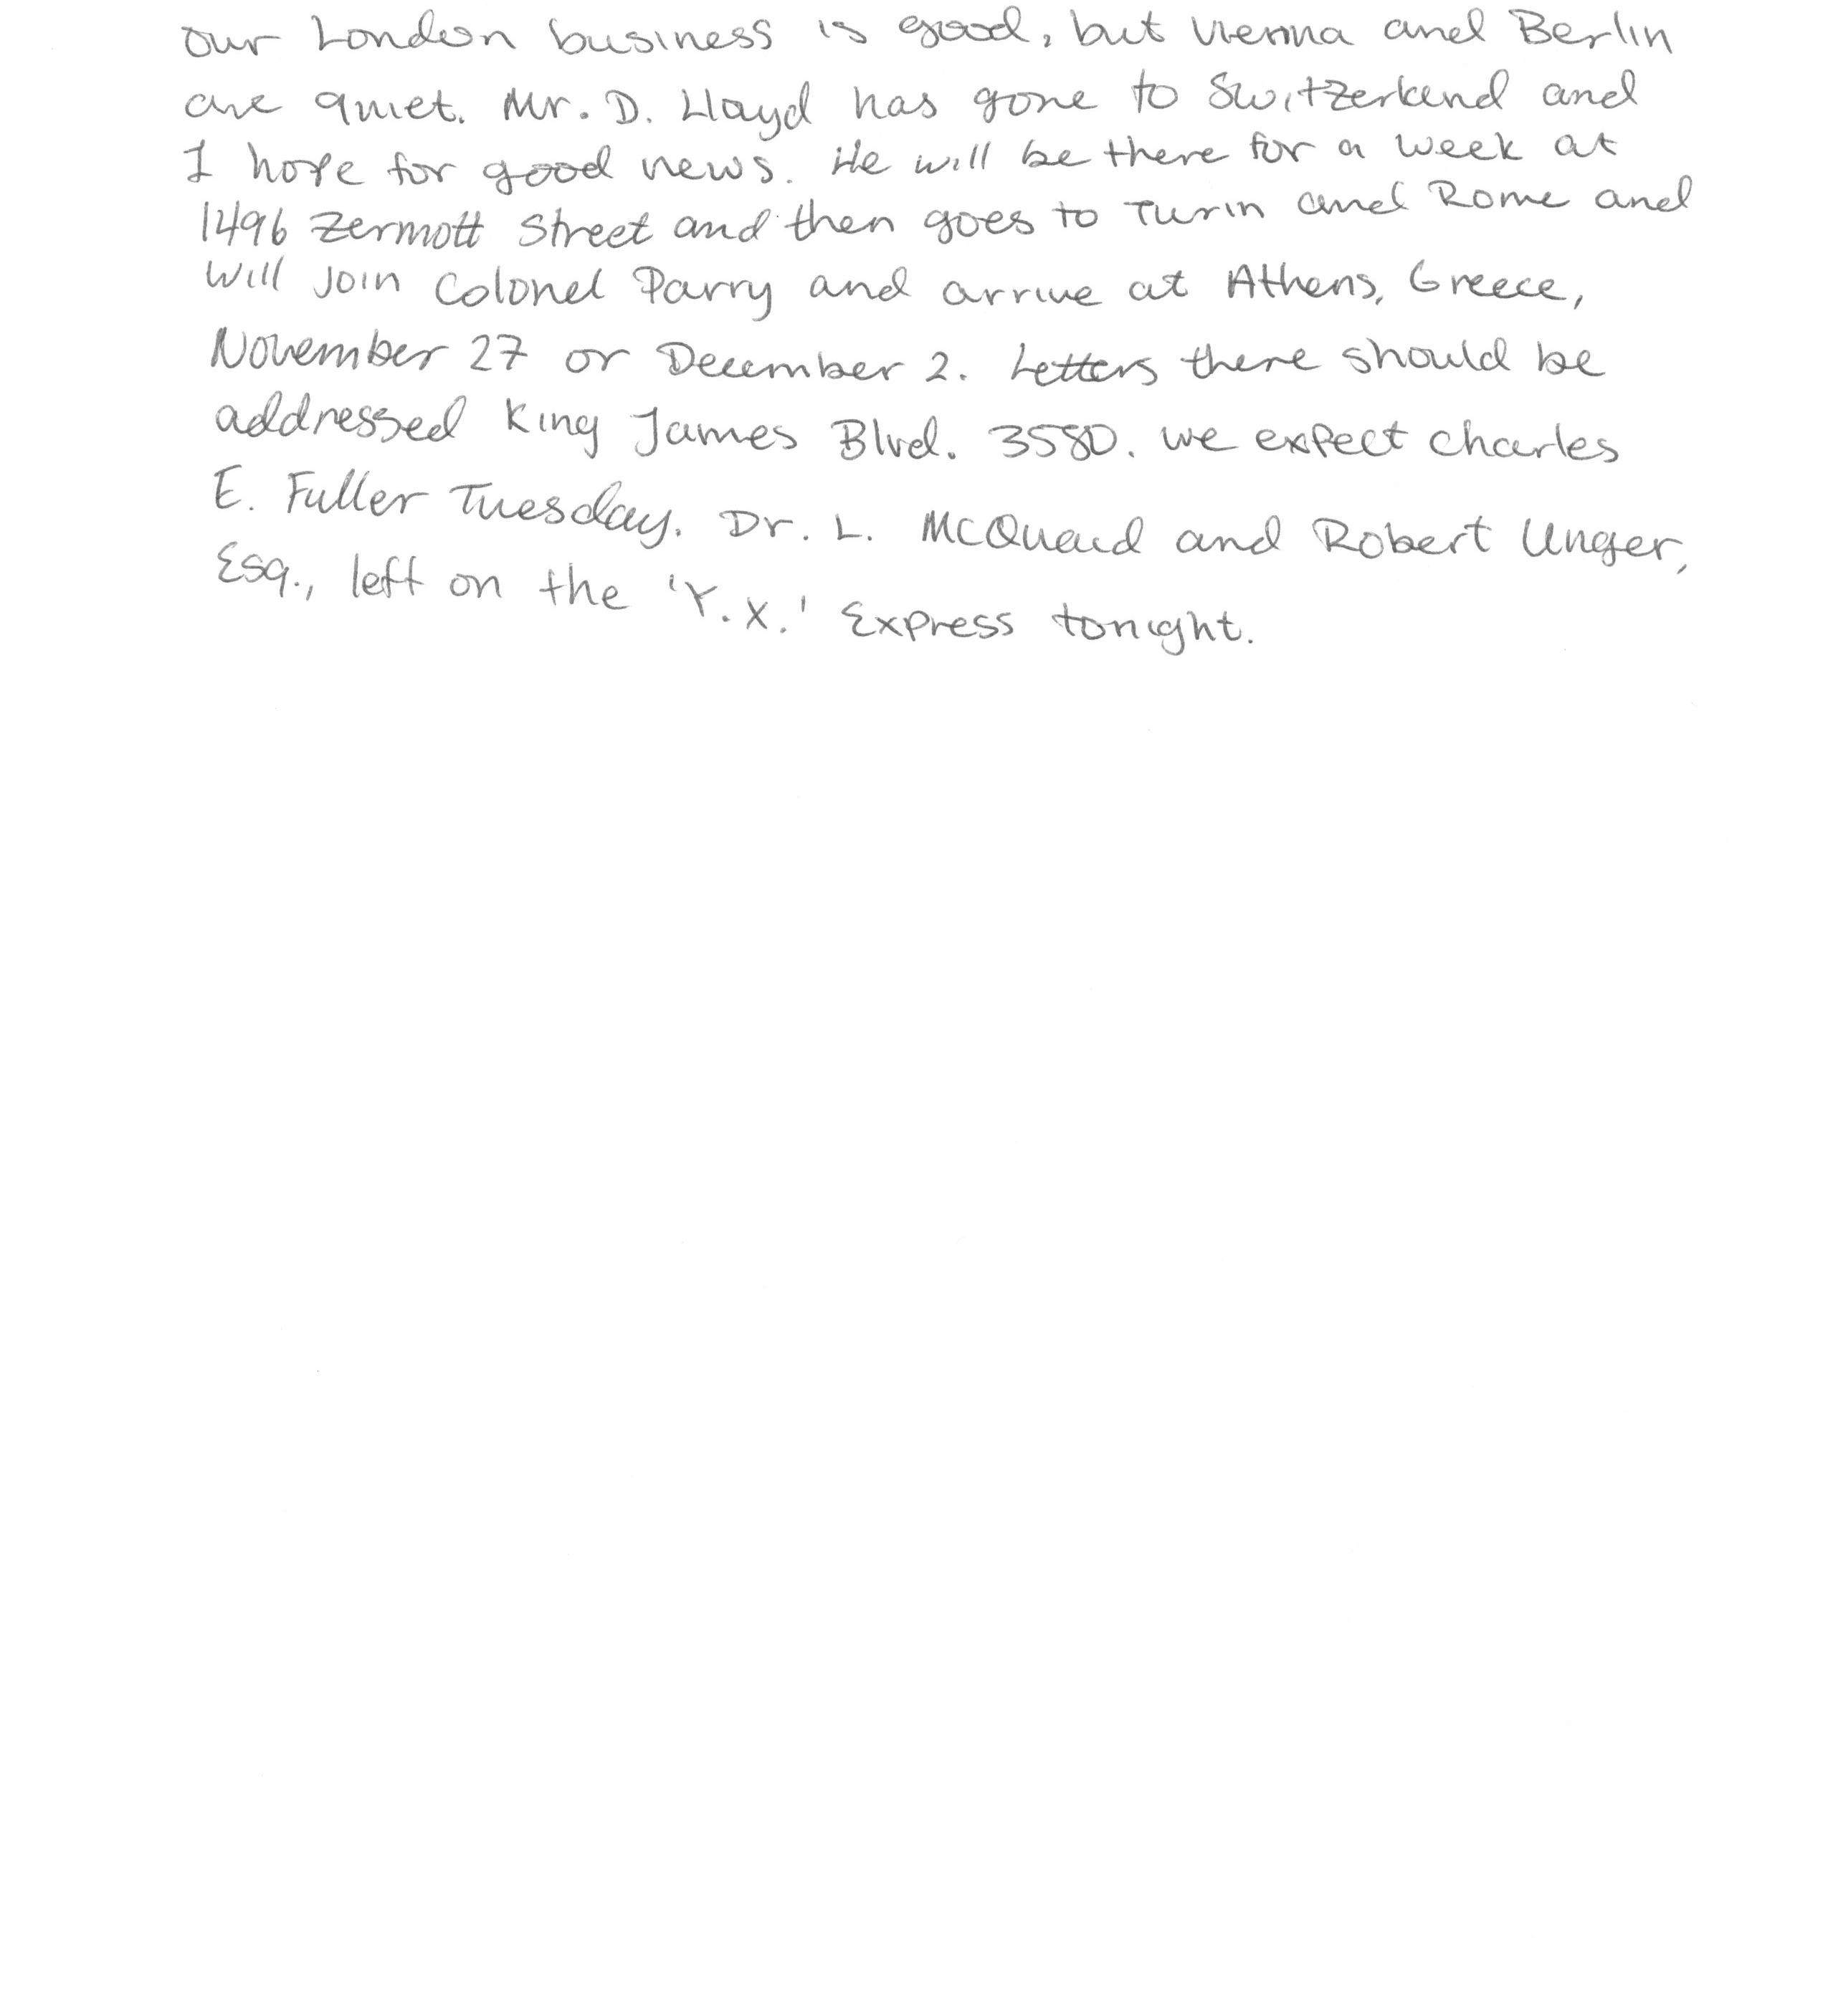 our London business is good, but Vienna and Berlin
are quiet. Mr. D. Lloyd has gone to Switzerland and
I hope for good news. He will be there for a week at
1496 Zermott Street and then goes to Turin and Rome and
will join Colonel Parry and arrive at Athens, Greece,
November 27 or December 2. Letters there should be
addressed King James Blvd. 3580. We expect Charles
E. Fuller Tuesday. Dr. L. McQuaid and Robert Unger,
Esq., left on the 'Y.X.' Express tonight.